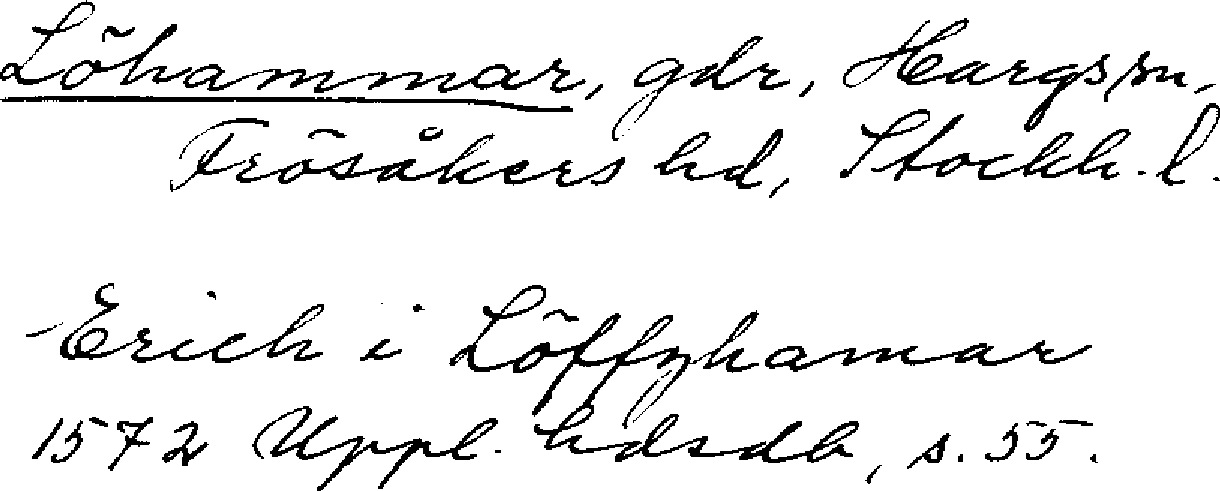 Löhammar, gdr, Hargs sn,
Frösåkers hd, Stockh. l.
Erich i Löffyhamar
1572 Uppl. hdsdb, s. 55.